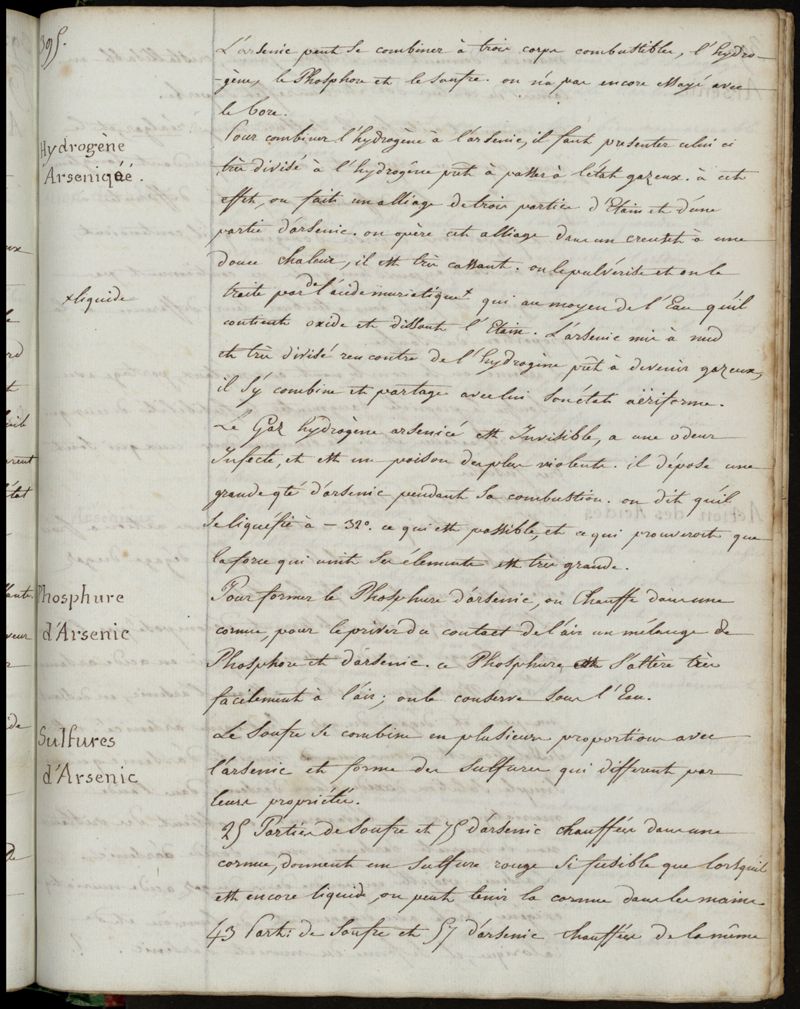 395.
L'arsenic peut se combiner à trois corps combustibles, l'hydro-
-gène, le Phosphore et le soufre. on n'a pas encore essayé avec
le bore.
Hydrogène
Arseniqué.
Pour combiner l'hydrogène à l'arsenic, il faut presenter celui ci
très divisé à l'hydrogène prêt à passer à l'état gazeux. à cet
effet, on fait un alliage de trois parties d'Etain et d'une
partie d'arsenic. on opère cet alliage dans un creuset à une
douce chaleur, il est très cassant. on le pulvérise et on le
traite par de l'acide muriatique x qui au moyen de l'Eau qu'il
xliquide
contient oxide et dissout l'Etain. L'arsenic mis à nud
et très divisé rencontre de l'hydrogène prêt à devenir gazeux,
il s'y combine et partage avec lui son état aëriforme.
Le Gaz hydrogène arsenicé est Invisible, a une odeur
Infecte, et est un poison des plus violents. il dépose une
grande qté d'arsenic pendant sa combustion. on dit qu'il
se liquéfie à - 32°. ce qui est possible, et ce qui prouveroit que
la force qui unit ses élements est très grande.
Phosphure
d'Arsenic
Pour former le Phosphure d'arsenic, on Chauffe dans une
cornue, pour le priver du contact de l'air un mélange de
Phosphore et d'arsenic. ce Phosphure s'altère très
facilement à l'air; on le conserve sous l'Eau.
Sulfures
d'Arsenic
Le Soufre se combine en plusieurs proportions avec
l'arsenic et forme des sulfures qui différent par
leurs propriétés.
25 Parties de Soufre et 75 d'arsenic chauffées dans une
cornue, donnent un sulfure rouge si fusible que lorsqu'il
est encore liquide, on peut tenir la cornue dans les mains
43 Parti: de Soufre et 57 d'arsenic chauffées de la même